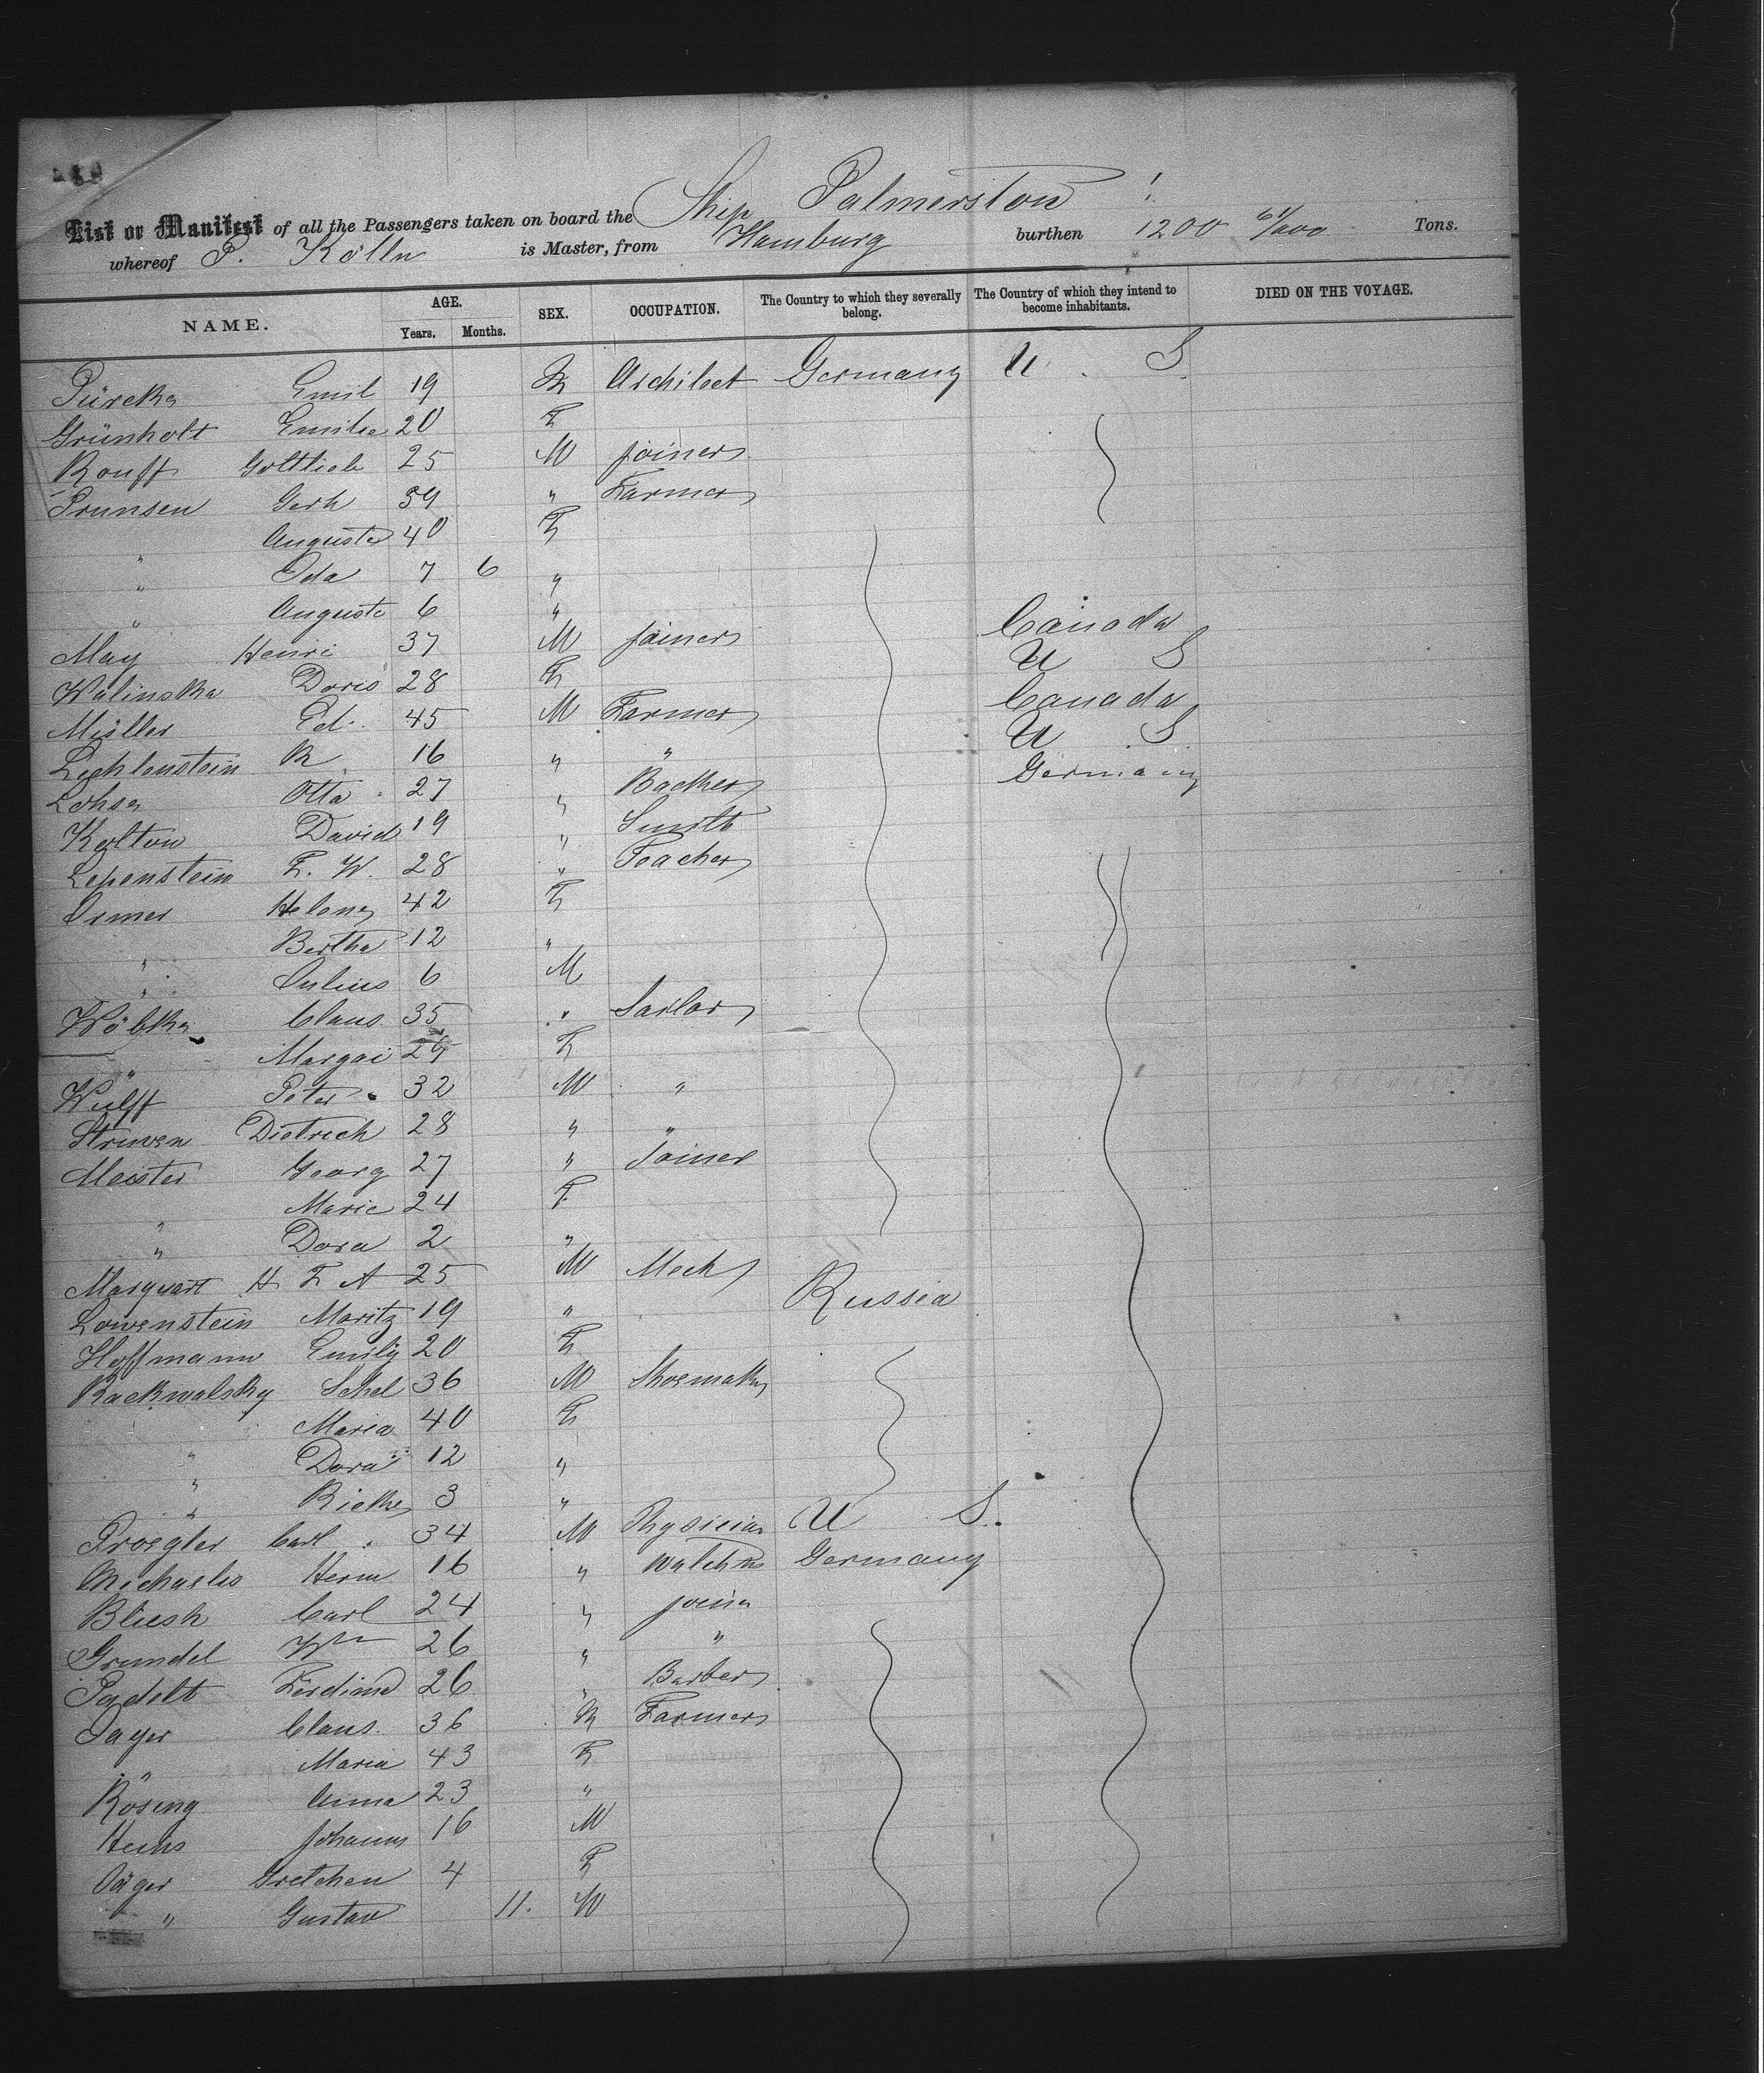 List or Manifest of all the Passengers taken on board the Ship Palmerston
whereof P. Kölln is Master, from Hamburg burthen 1200 61/100 Tons.
NAME. AGE. Years. Months. SEX. OCCUPATION. The Country to which they severally belong. The Country of which they intend to become inhabitants. DIED ON THE VOYAGE.
Emil 19 M Architect Germany U. S.
Grünholt Emilie 20 F
Rouff Gottlieb 25 M joiner
Prunsen Gerh 39 " Farmer
" Auguste 40 F
" Ida 7 6 "
" Auguste 6 "
May Henri 37 M joiner Canada
Walinska Doris 28 F U S
Müller Ed. 45 M Farmer Canada
Lichtenstein R 16 " " U. S.
Lohse Otto 27 " Backer Germany
Kolton David 19 " Smith
Lepenstein F. W. 28 " Teacher
Ormer Helene 42 F
" Bertha 12 "
" Julius 6 M
Wöbke Claus 35 " Sailor
" Margar 29 F
Wulff Peter 32 M "
Struven Dietrich 28 " "
Meister Georg 27 " Joiner
" Marie 24 F
" Dora 2 "
Marquart H F A 25 M Mech
Lowenstein Moritz 19 " Russia
Hoffmann Emily 20 F
Rackwalsky Schel 36 M Shoemaker
" Maria 40 F
" Dora 12 "
" Rieke 3 "
Proegler Carl 34 M Physician U S.
Michaelis Herm 16 " Germany
Bliesh Carl 24 " joiner
Grundel Wm 26 " "
Padelt Ferdinand 26 " Barber
Jager Claus 36 M Farmer
" Maria 43 F
Rösing Anna 23 "
Heins Johannes 16 M
Jäger Gretchen 4 F
" Gustav 11. M